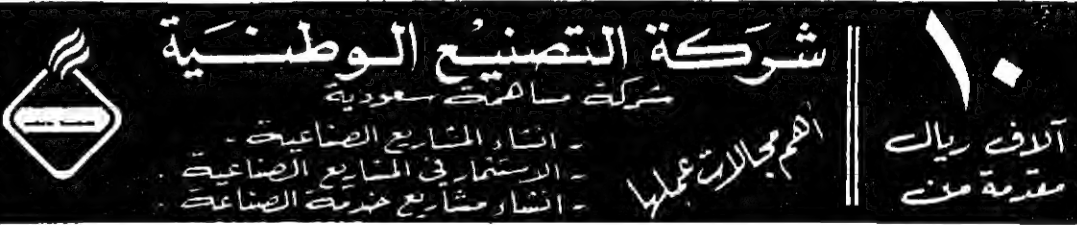 ١٠
آلاف ريال
مقدمة من
شركة التصنيع الوطنية
شركة مساهمة سعودية
اهم مجالات عملها
- انشاء المشاريع الصناعية .
- الاستثمار في المشاريع الصناعية .
- انشاء مشاريع خدمة الصناعة .